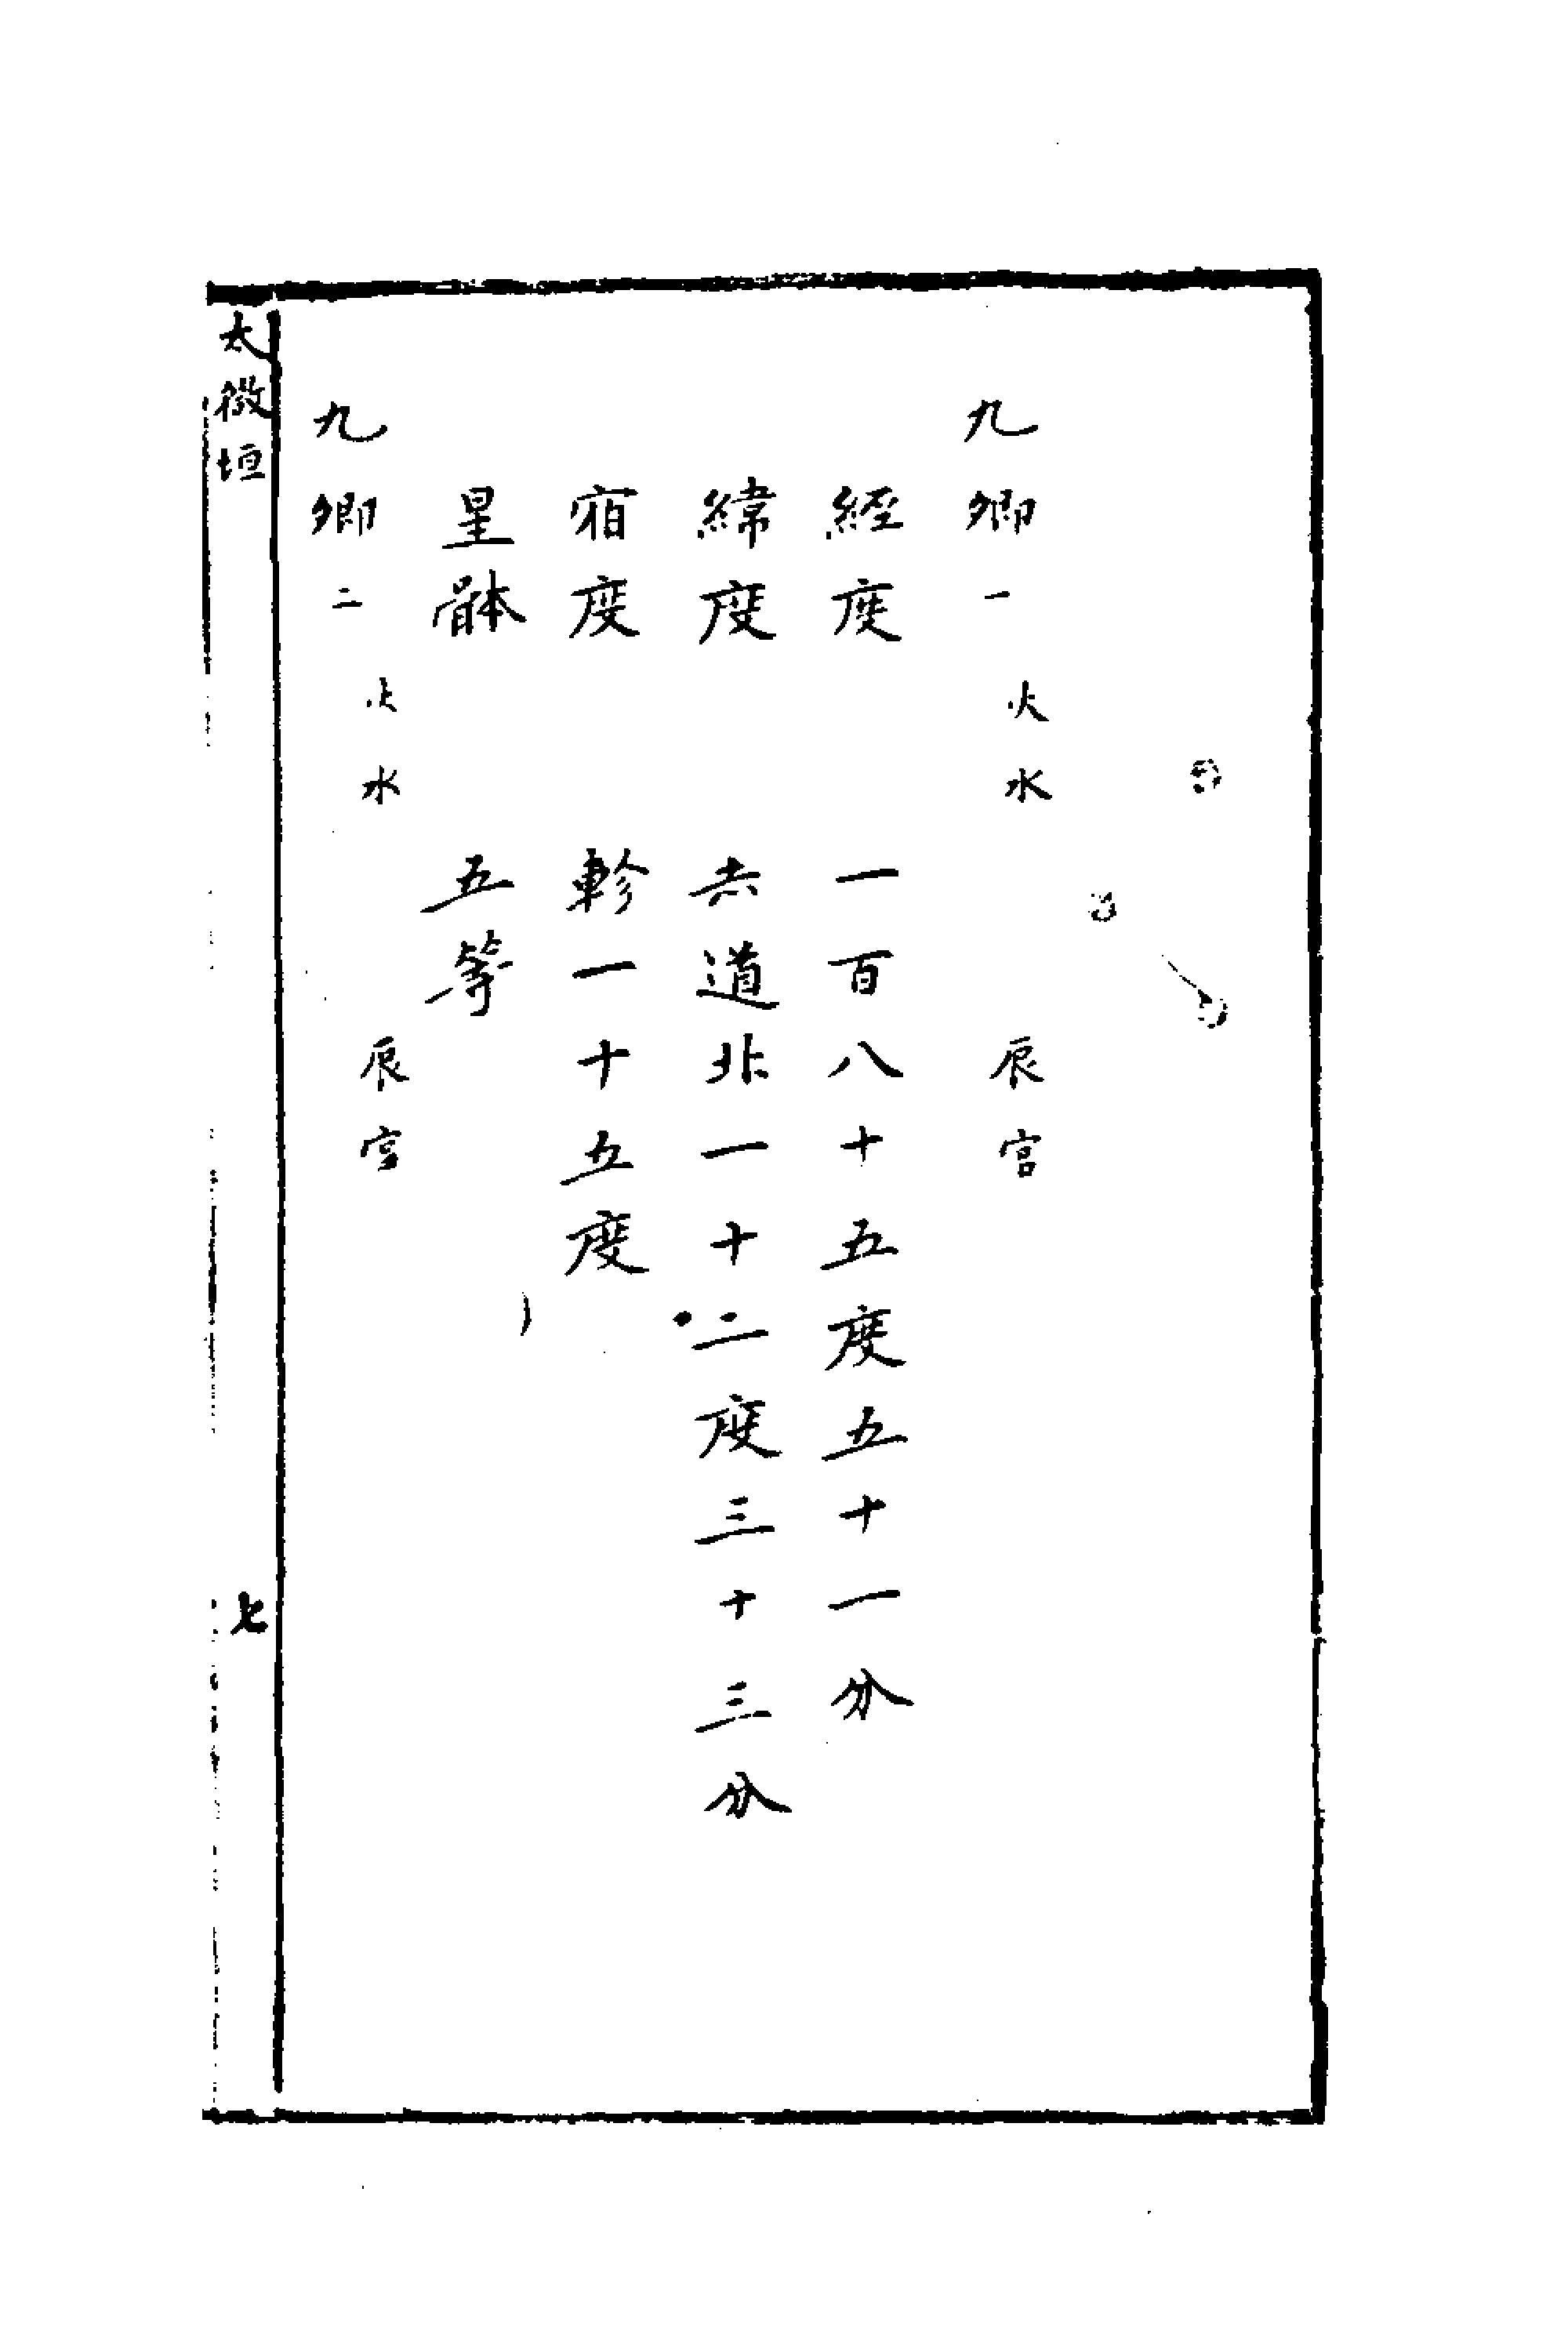 九卿一 火水 辰宮
經度 一百八十五度五十一分
緯度 赤道北一十二度三十三分
宿度 軫一十五度
星骵 五等
九卿二 火水 辰宮
太微垣 七